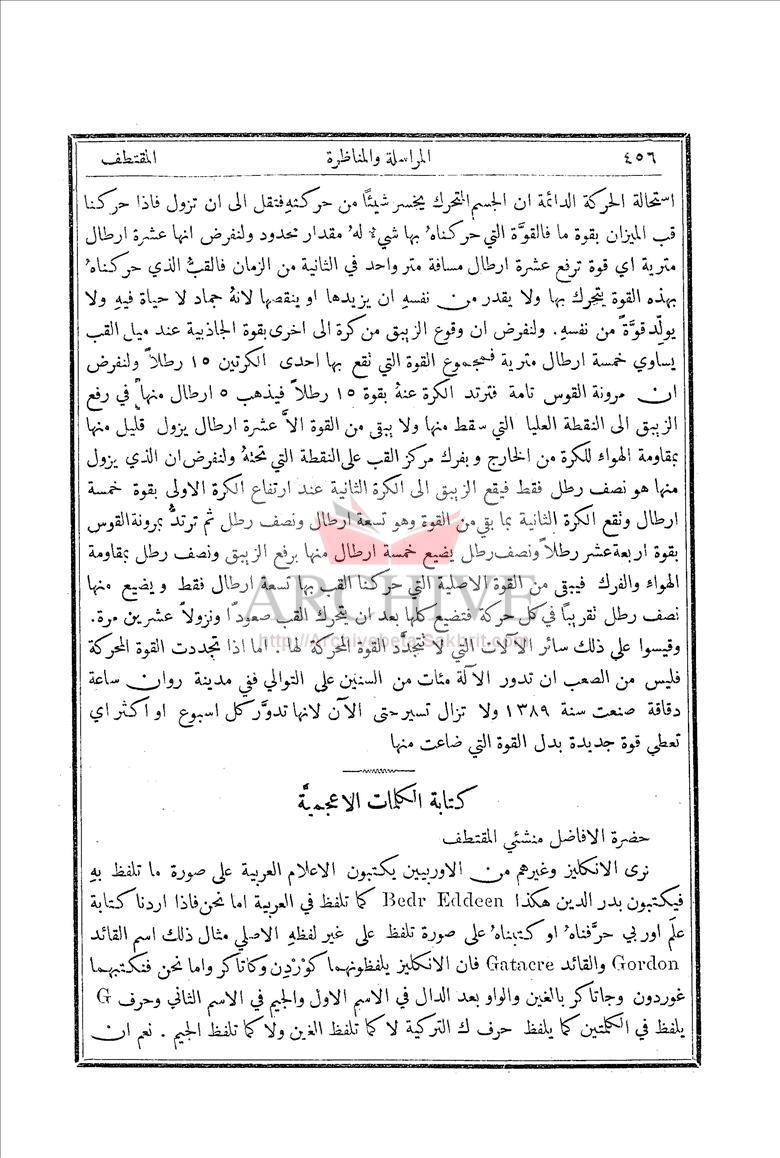 ٤٥٦ المراسلة والمناظرة المقتطف
استحالة الحركة الدائمة ان الجسم المتحرك يخسر شيئًا من حركتهِ فتقل الى ان تزول فاذا حركنا
قب الميزان بقوة ما فالقوَّة التي حركناهُ بها شيءٌ لهُ مقدار محدود ولنفرض انها عشرة ارطال
مترية اي قوة ترفع عشرة ارطال مسافة متر واحد في الثانية من الزمان فالقبُّ الذي حركناهُ
بهذه القوة يتحرك بها ولا يقدر من نفسهِ ان يزيدها او ينقصها لانهُ جماد لا حياة فيهِ ولا
يولّد قوَّةً من نفسهِ. ولنفرض ان وقوع الزيبق من كرة الى اخرى بقوة الجاذبية عند ميل القب
يساوي خمسة ارطال مترية فمجموع القوة التي تقع بها احدى الكرتين ١٥ رطلاً ولنفرض
ان مرونة القوس تامة فترتد الكرة عنهُ بقوة ١٥ رطلاً فيذهب ٥ ارطال منها في رفع
الزيبق الى النقطة العليا التي سقط منها ولا يبقى من القوة الاَّ عشرة ارطال يزول قليل منها
بمقاومة الهواء للكرة من الخارج وبفرك مركز القب على النقطة التي تحتهُ ولنفرض ان الذي يزول
منها هو نصف رطل فقط فيقع الزيبق الى الكرة الثانية عند ارتفاع الكرة الاولى بقوة خمسة
ارطال وتقع الكرة الثانية بما بقي من القوة وهو تسعة ارطال ونصف رطل ثم ترتدُّ بمرونة القوس
بقوة اربعة عشر رطلاً ونصف رطل يضيع خمسة ارطال منها برفع الزيبق ونصف رطل بمقاومة
الهواء والفرك فيبقى من القوة الاصلية التي حركنا القب بها تسعة ارطال فقط ويضيع منها
نصف رطل تقريبًا في كل حركة فتضيع كلها بعد ان يتحرك القب صعودًا ونزولاً عشرين مرة.
وقيسوا على ذلك سائر الآلات التي لا تتجدَّد القوة المحركة لها. اما اذا تجددت القوة المحركة
فليس من الصعب ان تدور الآلة مئات من السنين على التوالي ففي مدينة روان ساعة
دقاقة صنعت سنة ١٣٨٩ ولا تزال تسير حتى الآن لانها تدوَّر كل اسبوع او اكثر اي
تعطى قوة جديدة بدل القوة التي ضاعت منها
كتابة الكلمات الاعجميَّة
حضرة الافاضل منشئي المقتطف
نرى الانكليز وغيرهم من الاوربيين يكتبون الاعلام العربية على صورة ما تلفظ بهِ
فيكتبون بدر الدين هكذا Bedr Eddeen كما تلفظ في العربية اما نحن فاذا اردنا كتابة
علَم اوربي حرَّفناهُ او كتبناهُ على صورة تلفظ على غير لفظهِ الاصلي مثال ذلك اسم القائد
Gordon والقائد Gatacre فان الانكليز يلفظونهما كوْرْدِن وكاتاكر واما نحن فنكتبهما
غوردون وجاتاكر بالغين والواو بعد الدال في الاسم الاول والجيم في الاسم الثاني وحرف G
يلفظ في الكلمتين كما يلفظ حرف ك التركية لا كما تلفظ الغين ولا كما تلفظ الجيم. نعم ان
ARCHIVE
http://Archivebeta.Sakhrit.com